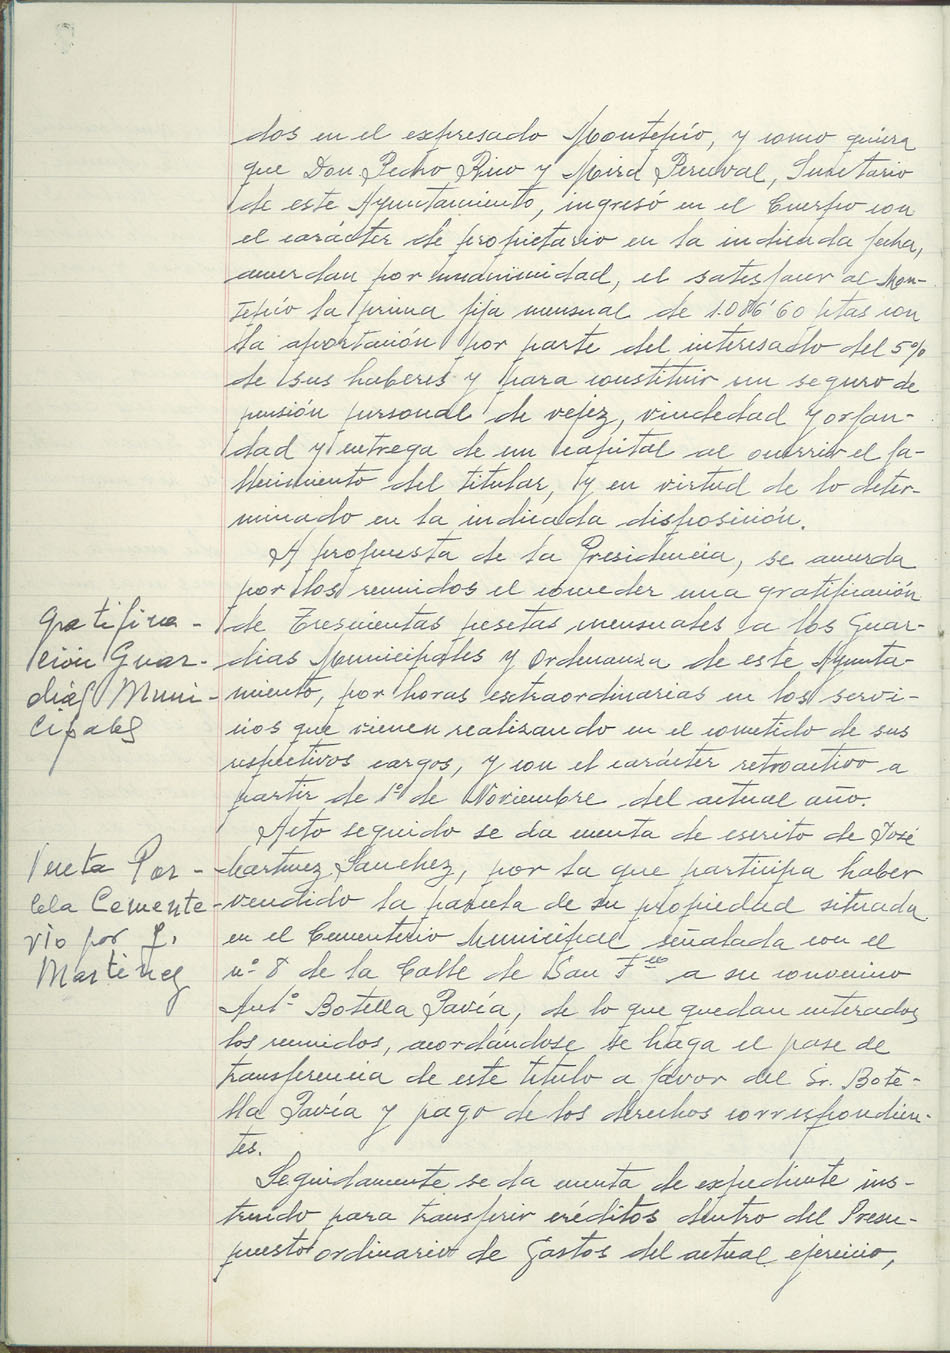 dos en el expresado Montepío, y como quiera
que Don Pedro Rico y Mira Perceval, Secretario
de este Ayuntamiento, ingresó en el Cuerpo con
el carácter de propietario en la indicada fecha,
acuerdan por unanimidad, el satisfacer al Mon-
tepío la prima fija mensual de 1.086'60 ptas con
la aportación por parte del interesado del 5%
de sus haberes y para constituir un seguro de
pensión personal de vejez, viudedad y orfan-
dad y entrega de un capital al ocurrir el fa-
llecimiento del titular, y en virtud de lo deter-
minado en la indicada disposición.
A propuesta de la Presidencia, se acuerda
por los reunidos el conceder una gratificación
Gratifica-
ción Guar-
dias Muni-
cipales
de Trescientas pesetas mensuales a los Guar-
dias Municipales y Ordenanza de este Ayunta-
miento, por horas extraordinarias en los servi-
cios que vienen realizando en el cometido de sus
respectivos cargos, y con el carácter retroactivo a
partir de 1º de Noviembre del actual año.
Acto seguido se da cuenta de escrito de José
Venta Par-
cela Cemente-
rio por J.
Martinez
Martinez Sanchez, por la que participa haber
vendido la parcela de su propiedad situada
en el Cementerio Municipal señalada con el
nº 8 de la Calle de San Fco a su convecino
Antº Botella Pavía, de lo que quedan enterados
los reunidos, acordándose se haga el pase de
transferencia de este titulo a favor del Sr. Bote-
lla Pavía y pago de los derechos correspondien-
tes.
Seguidamente se da cuenta de expediente ins-
truido para transferir créditos dentro del Presu-
puesto ordinario de Gastos del actual ejercicio,